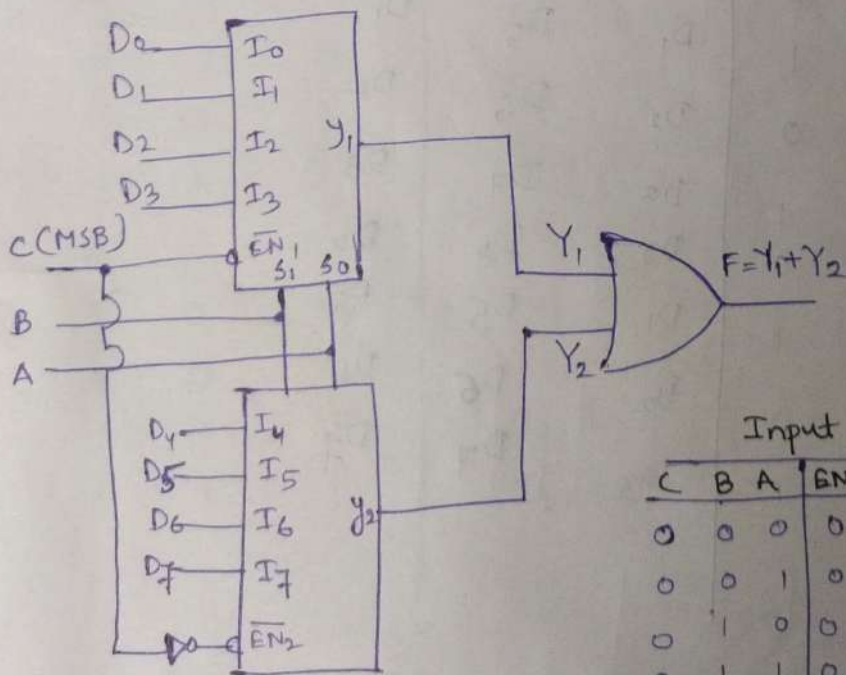 D0 I0
D1 I1
D2 I2 y1
D3 I3
C(MSB) E̅N̅1
S1 S0
B
A
Y1
F=Y1+Y2
Y2
D4 I4
D5 I5
D6 I6 y2
D7 I7
E̅N̅2
Input
C B A EN
0 0 0 0
0 0 1 0
0 1 0 0